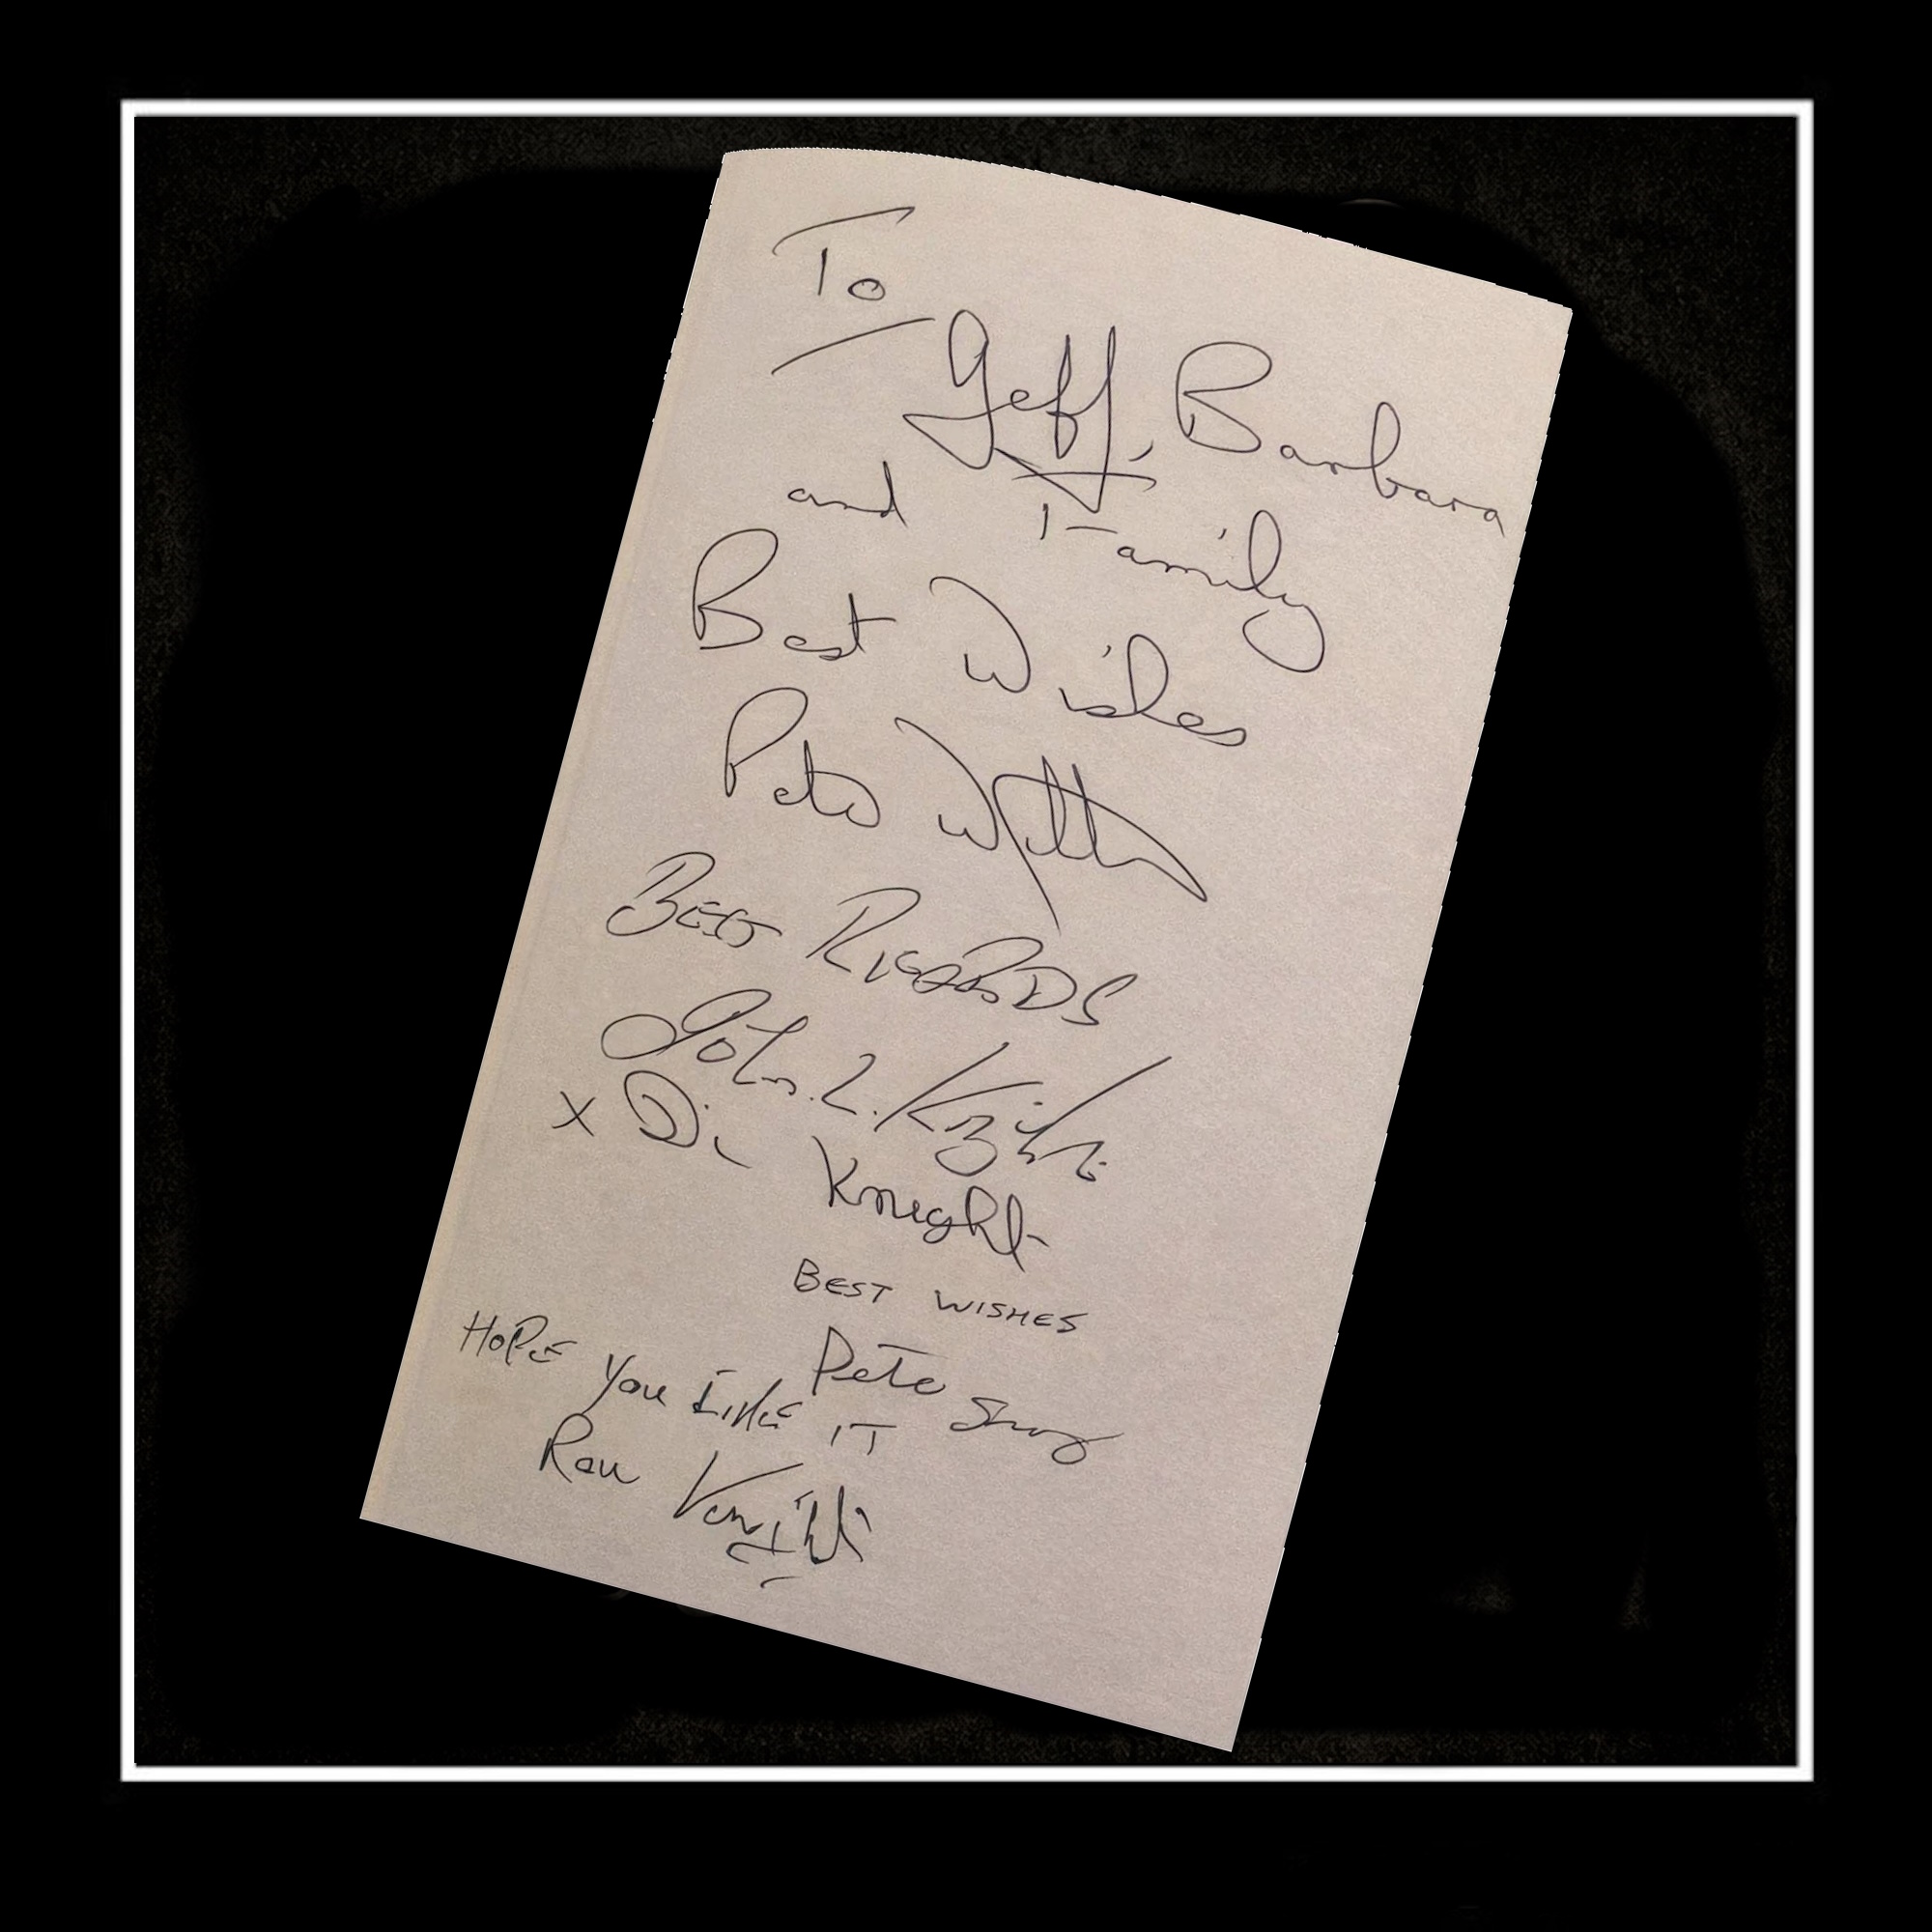 To
Geff, Barbara
and Family
Best Wishes
Pete
BEST REGARDS
John. L. Knight
x Di Knight
BEST WISHES
Pete
HOPE You LIKE IT
Ron Knight